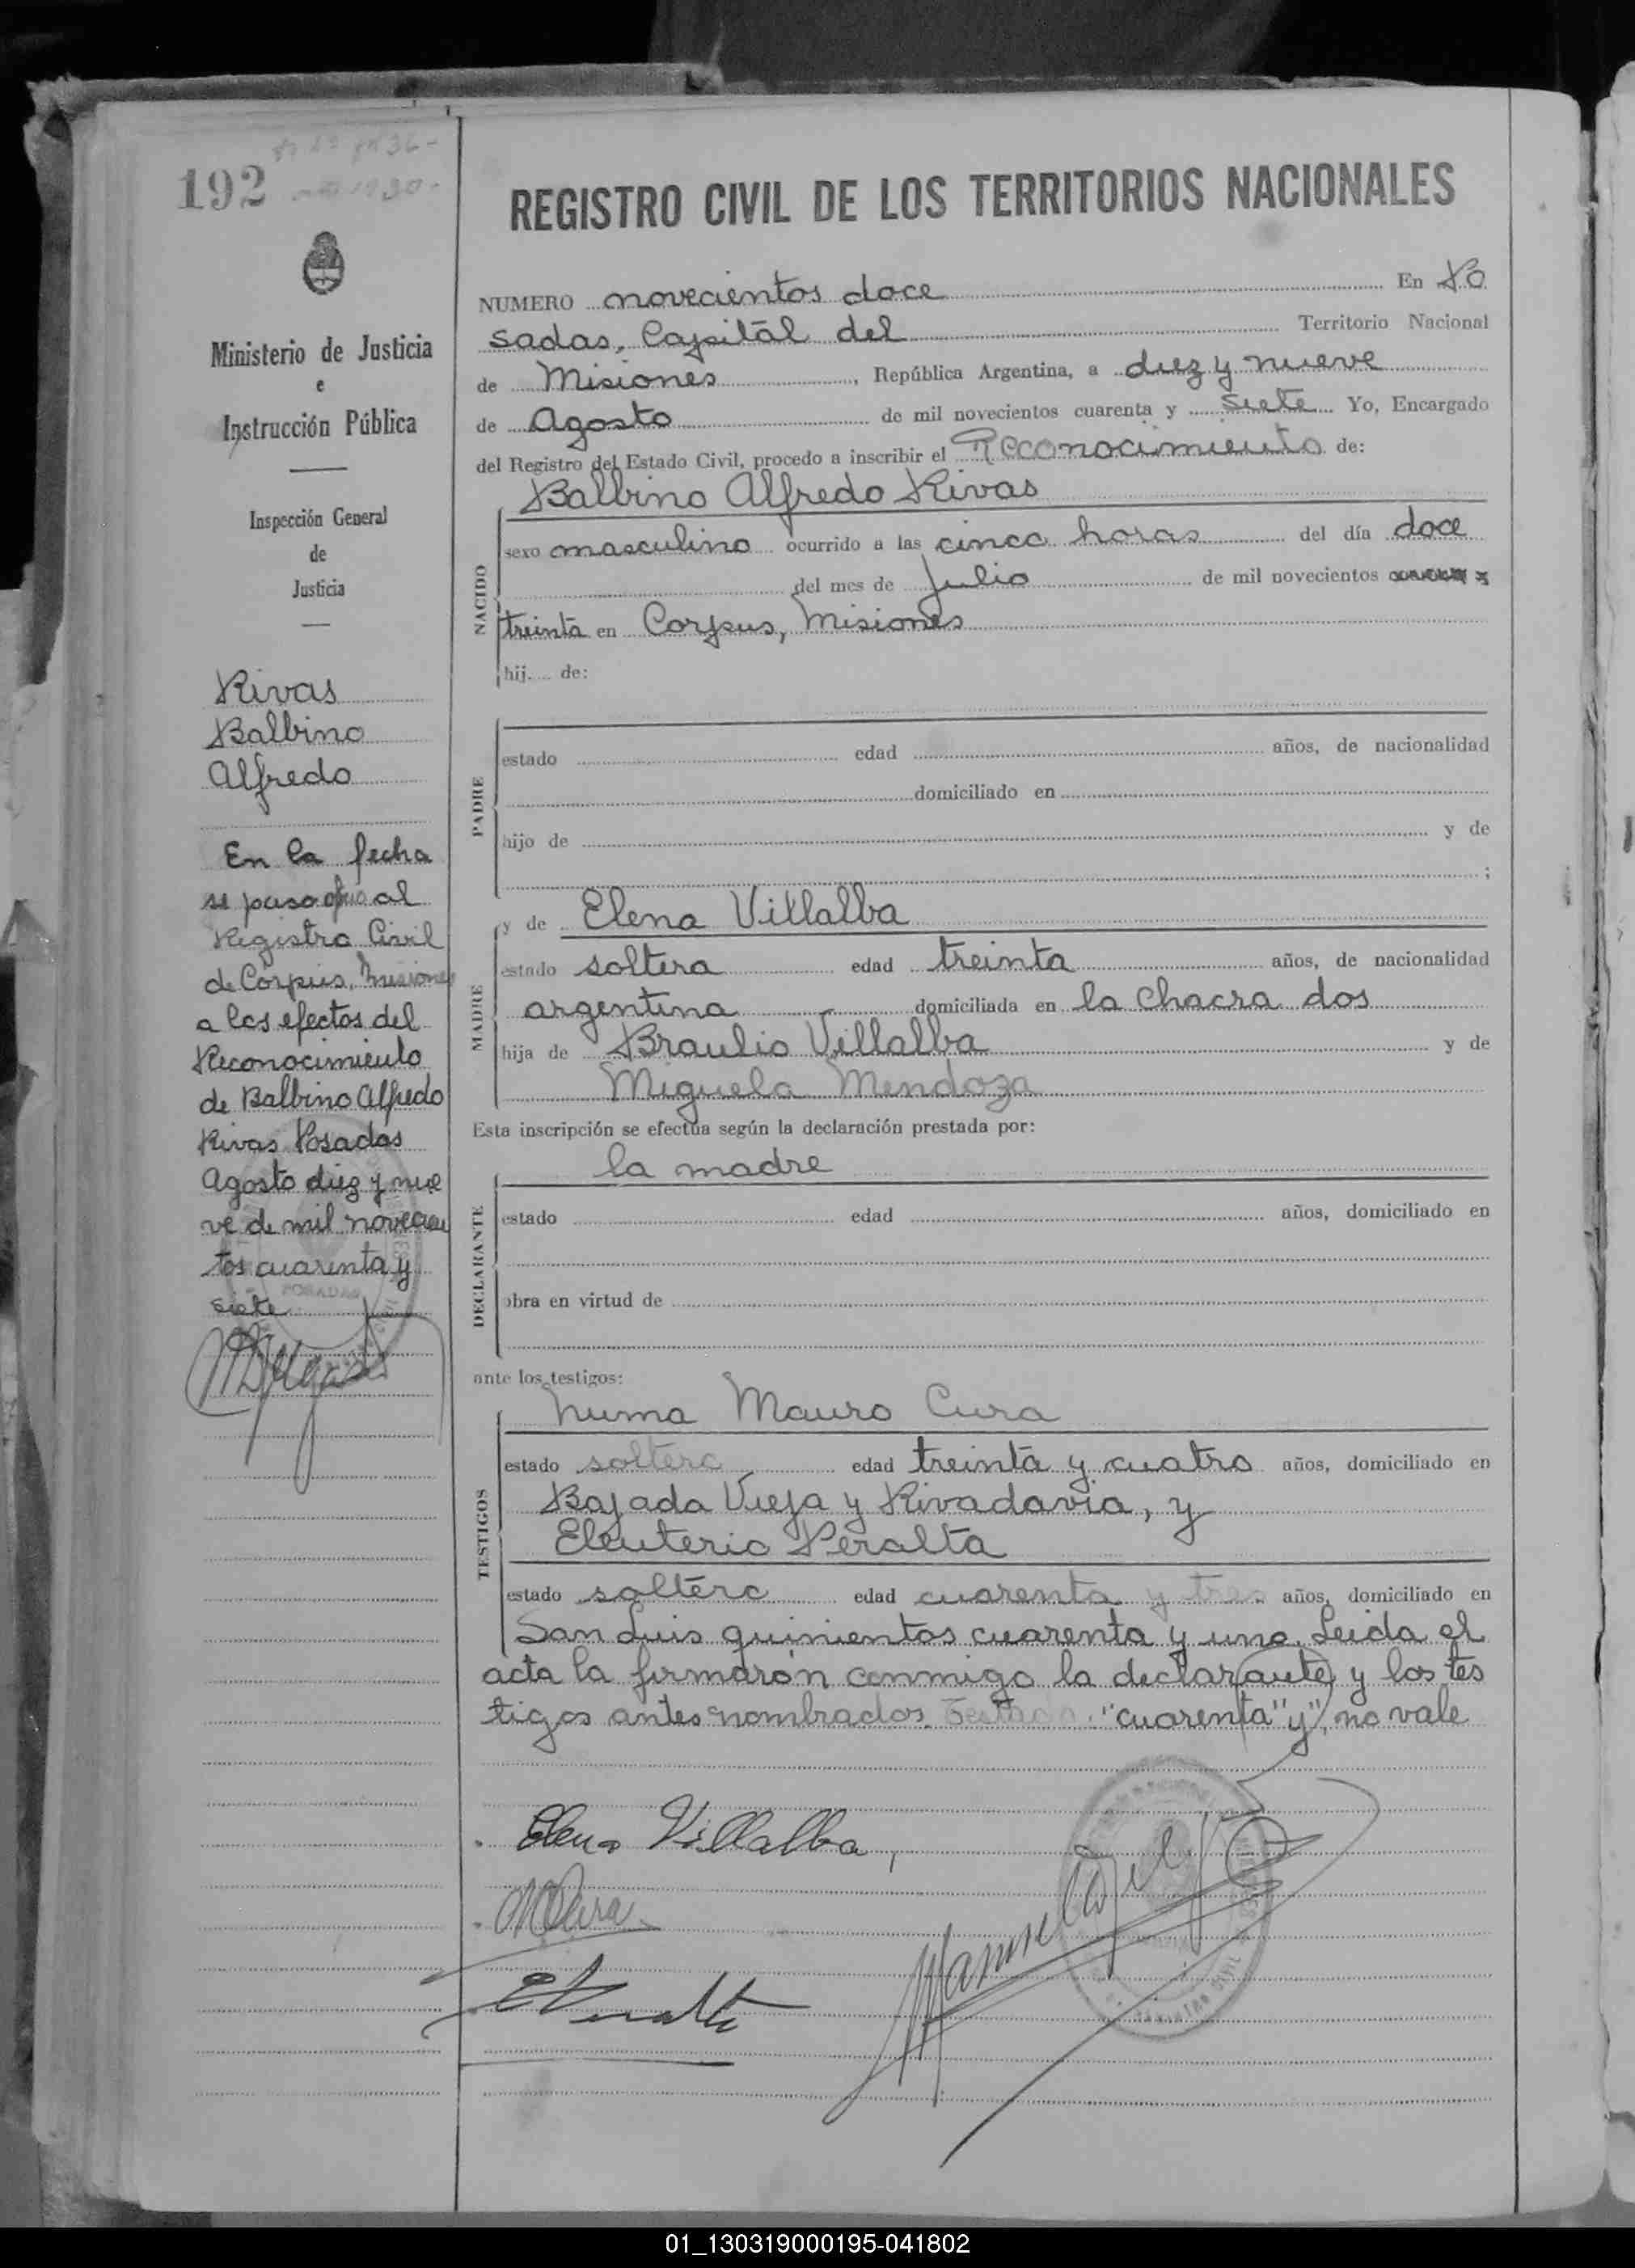 192
1930-
REGISTRO CIVIL DE LOS TERRITORIOS NACIONALES
Ministerio de Justicia
e
Instrucción Pública
Inspección General
de
Justicia
Rivas
Balbino
Alfredo
En la fecha
se paso ofio al
Registro Civil
de Corpus, Misiones
a los efectos del
Reconocimiento
de Balbino Alfredo
Rivas Posadas
Agosto diez y nue
ve de mil novecien
tos cuarenta y
siete
POSADAS
NUMERO novecientos doce En Po
sadas, Capital del Territorio Nacional
de Misiones, República Argentina, a diez y nueve
de Agosto de mil novecientos cuarenta y siete Yo, Encargado
del Registro del Estado Civil, procedo a inscribir el Reconocimiento de:
Balbino Alfredo Rivas
NACIDO
sexo masculino ocurrido a las cinco horas del día doce
del mes de Julio de mil novecientos
treinta en Corpus, Misiones
hij.... de:
PADRE
estado edad años, de nacionalidad
domiciliado en
hijo de y de
;
MADRE
y de Elena Villalba
estado soltera edad treinta años, de nacionalidad
argentina domiciliada en la Chacra dos
hija de Braulio Villalba y de
Miguela Mendoza
Esta inscripción se efectúa según la declaración prestada por:
DECLARANTE
la madre
estado edad años, domiciliado en
obra en virtud de
ante los testigos:
TESTIGOS
Numa Mauro Cura
estado soltero edad treinta y cuatro años, domiciliado en
Bajada Vieja y Rivadavia, y
Eleuterio Peralta
estado soltero edad cuarenta y tres años, domiciliado en
San Luis quinientos cuarenta y uno. Leida el
acta la firmarón conmigo la declarante y los tes
tigos antes nombrados. Testado: "cuarenta" y", no vale
Elena Villalba,
NMCura
EPeralta
01_130319000195-041802